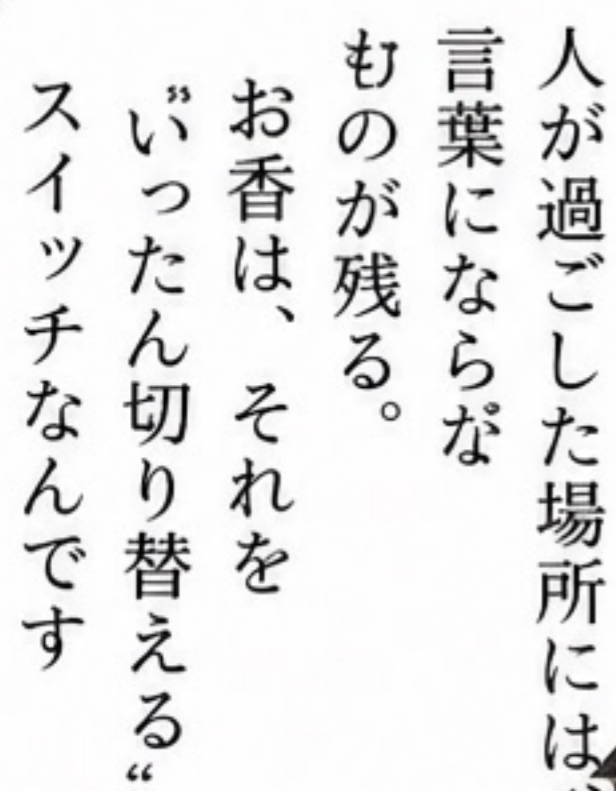 人が過ごした場所には、
言葉にならな
むのが残る。
お香は、それを
"いったん切り替える"
スイッチなんです